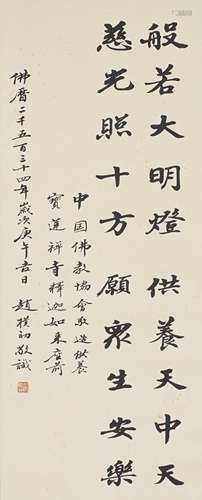 般若大明燈供養天中天
慈光照十方願眾生安樂
中国佛教協會敬造供養
寶蓮禅寺釋迦如来座前
佛曆二千五百三十四年歲次庚午吉日
趙樸初敬識